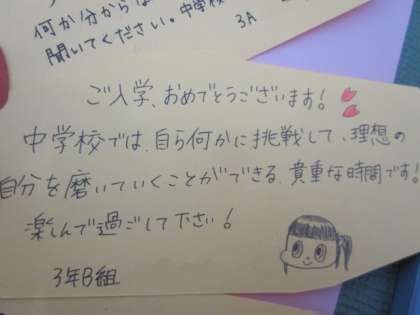 何か分からな
聞いてください。中学校
3A
ご入学、おめでとうございます!
中学校では、自ら何かに挑戦して、理想の
自分を磨いていくことができる、貴重な時間です!
楽しんで過ごして下さい!
3年B組